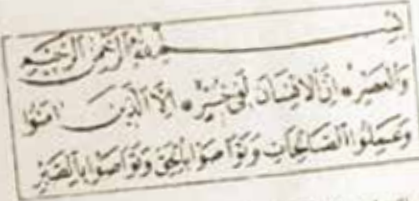 بِسْمِ اللهِ الرَّحْمٰنِ الرَّحِيمِ
وَالْعَصْرِ * اِنَّ الْاِنْسَانَ لَفِى خُسْرٍ * اِلَّا الَّذِينَ اٰمَنُوا
وَعَمِلُوا الصَّالِحَاتِ وَتَوَاصَوْا بِالْحَقِّ وَتَوَاصَوْا بِالصَّبْرِ